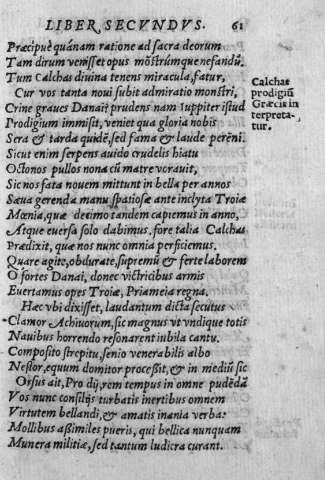 LIBER SECVNDVS. 61
Præcipuè quánam ratione ad sacra deorum
Tam dirum venisset opus mōstrúmque nefandū.
Tum Calchas diuina tenens miracula, fatur,
Cur vos tanta noui subit admiratio monstri,
Crine graues Danai? prudens nam Iuppiter istud
Prodigium immisit, veniet qua gloria nobis
Sera & tarda quidē, sed fama & laude perēni.
Sicut enim serpens auido crudelis hiatu
Octonos pullos nona cū matre vorauit,
Sic nos fata nouem mittunt in bella per annos
Sæua gerenda manu spatiosæ ante inclyta Troiæ
Mœnia, quæ decimo tandem capiemus in anno,
Atque euersa solo dabimus, fore talia Calchas
Prædixit, quæ nos nunc omnia perficiemus.
Quare agite, obdurate, supremū & ferte laborem
O fortes Danai, donec victricibus armis
Euertamus opes Troiæ, Priameia regna.
Hæc vbi dixisset, laudantum dicta secutus
Clamor Achiuorum, sic magnus vt vndique totis
Nauibus horrendo resonarent iubila cantu.
Composito strepitu, senio venerabilis albo
Nestor, equum domitor processit, & in mediū sic
Orsus ait, Pro dij, rem tempus in omne pudēdā
Vos nunc consilijs turbatis inertibus omnem
Virtutem bellandi, & amatis inania verba:
Mollibus assimiles pueris, qui bellica nunquam
Munera militiæ, sed tantum ludicra curant.
Calchas
prodigiū
Græcis in
terpreta-
tur.